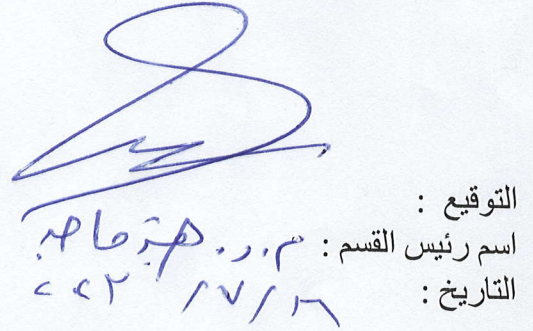 التوقيع :
اسم رئيس القسم : م.د. هبة ماجد
التاريخ : / ٧ / ٢٠٢٣